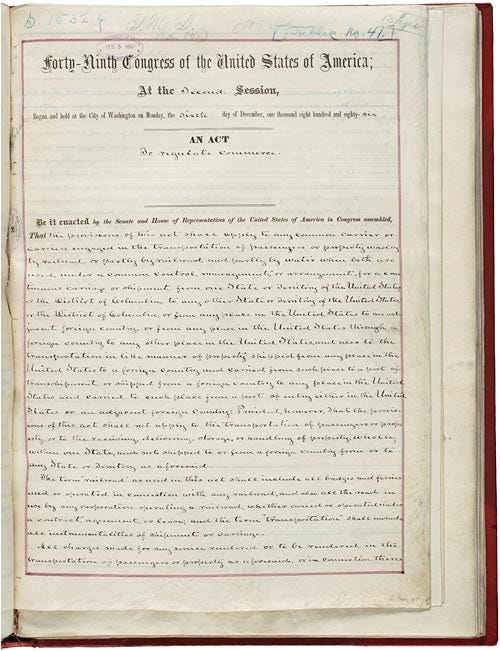 D 1532 &
Public No. 41.
FEB 5 1887
Forty-Ninth Congress of the United States of America;
At the Second Session,
Begun and held at the City of Washington on Monday, the sixth day of December, one thousand eight hundred and eighty-six
AN ACT
To regulate commerce.
Be it enacted by the Senate and House of Representatives of the United States of America in Congress assembled,
That the provisions of this act shall apply to any common carrier or
carriers engaged in the transportation of passengers or property wholly
by railroad, or partly by railroad and partly by water when both are
used, under a common control, management, or arrangement, for a con
tinuous carriage or shipment, from one State or Territory of the United States,
or the District of Columbia, to any other State or Territory of the United States,
or the District of Columbia, or from any place in the United States to an ad
jacent foreign country, or from any place in the United States through a
foreign country to any other place in the United States, and also to the
transportation in like manner of property shipped from any place in the
United States to a foreign country and carried from such place to a port of
transshipment, or shipped from a foreign country to any place in the United
States and carried to such place from a port of entry either in the United
States or an adjacent foreign country: Provided, however, That the provis-
ions of this act shall not apply to the transportation of passengers or prop
erty, or to the receiving, delivering, storage, or handling of property, wholly
within one State, and not shipped to or from a foreign country from or to
any State or Territory as aforesaid.
The term "railroad" as used in this act shall include all bridges and ferries
used or operated in connection with any railroad, and also all the road in
use by any corporation operating a railroad, whether owned or operated under
a contract, agreement, or lease; and the term "transportation" shall include
all instrumentalities of shipment or carriage.
All charges made for any service rendered or to be rendered in the
transportation of passengers or property as aforesaid, or in connection there